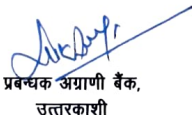 प्रबन्धक अग्रणी बैंक,
उत्तरकाशी